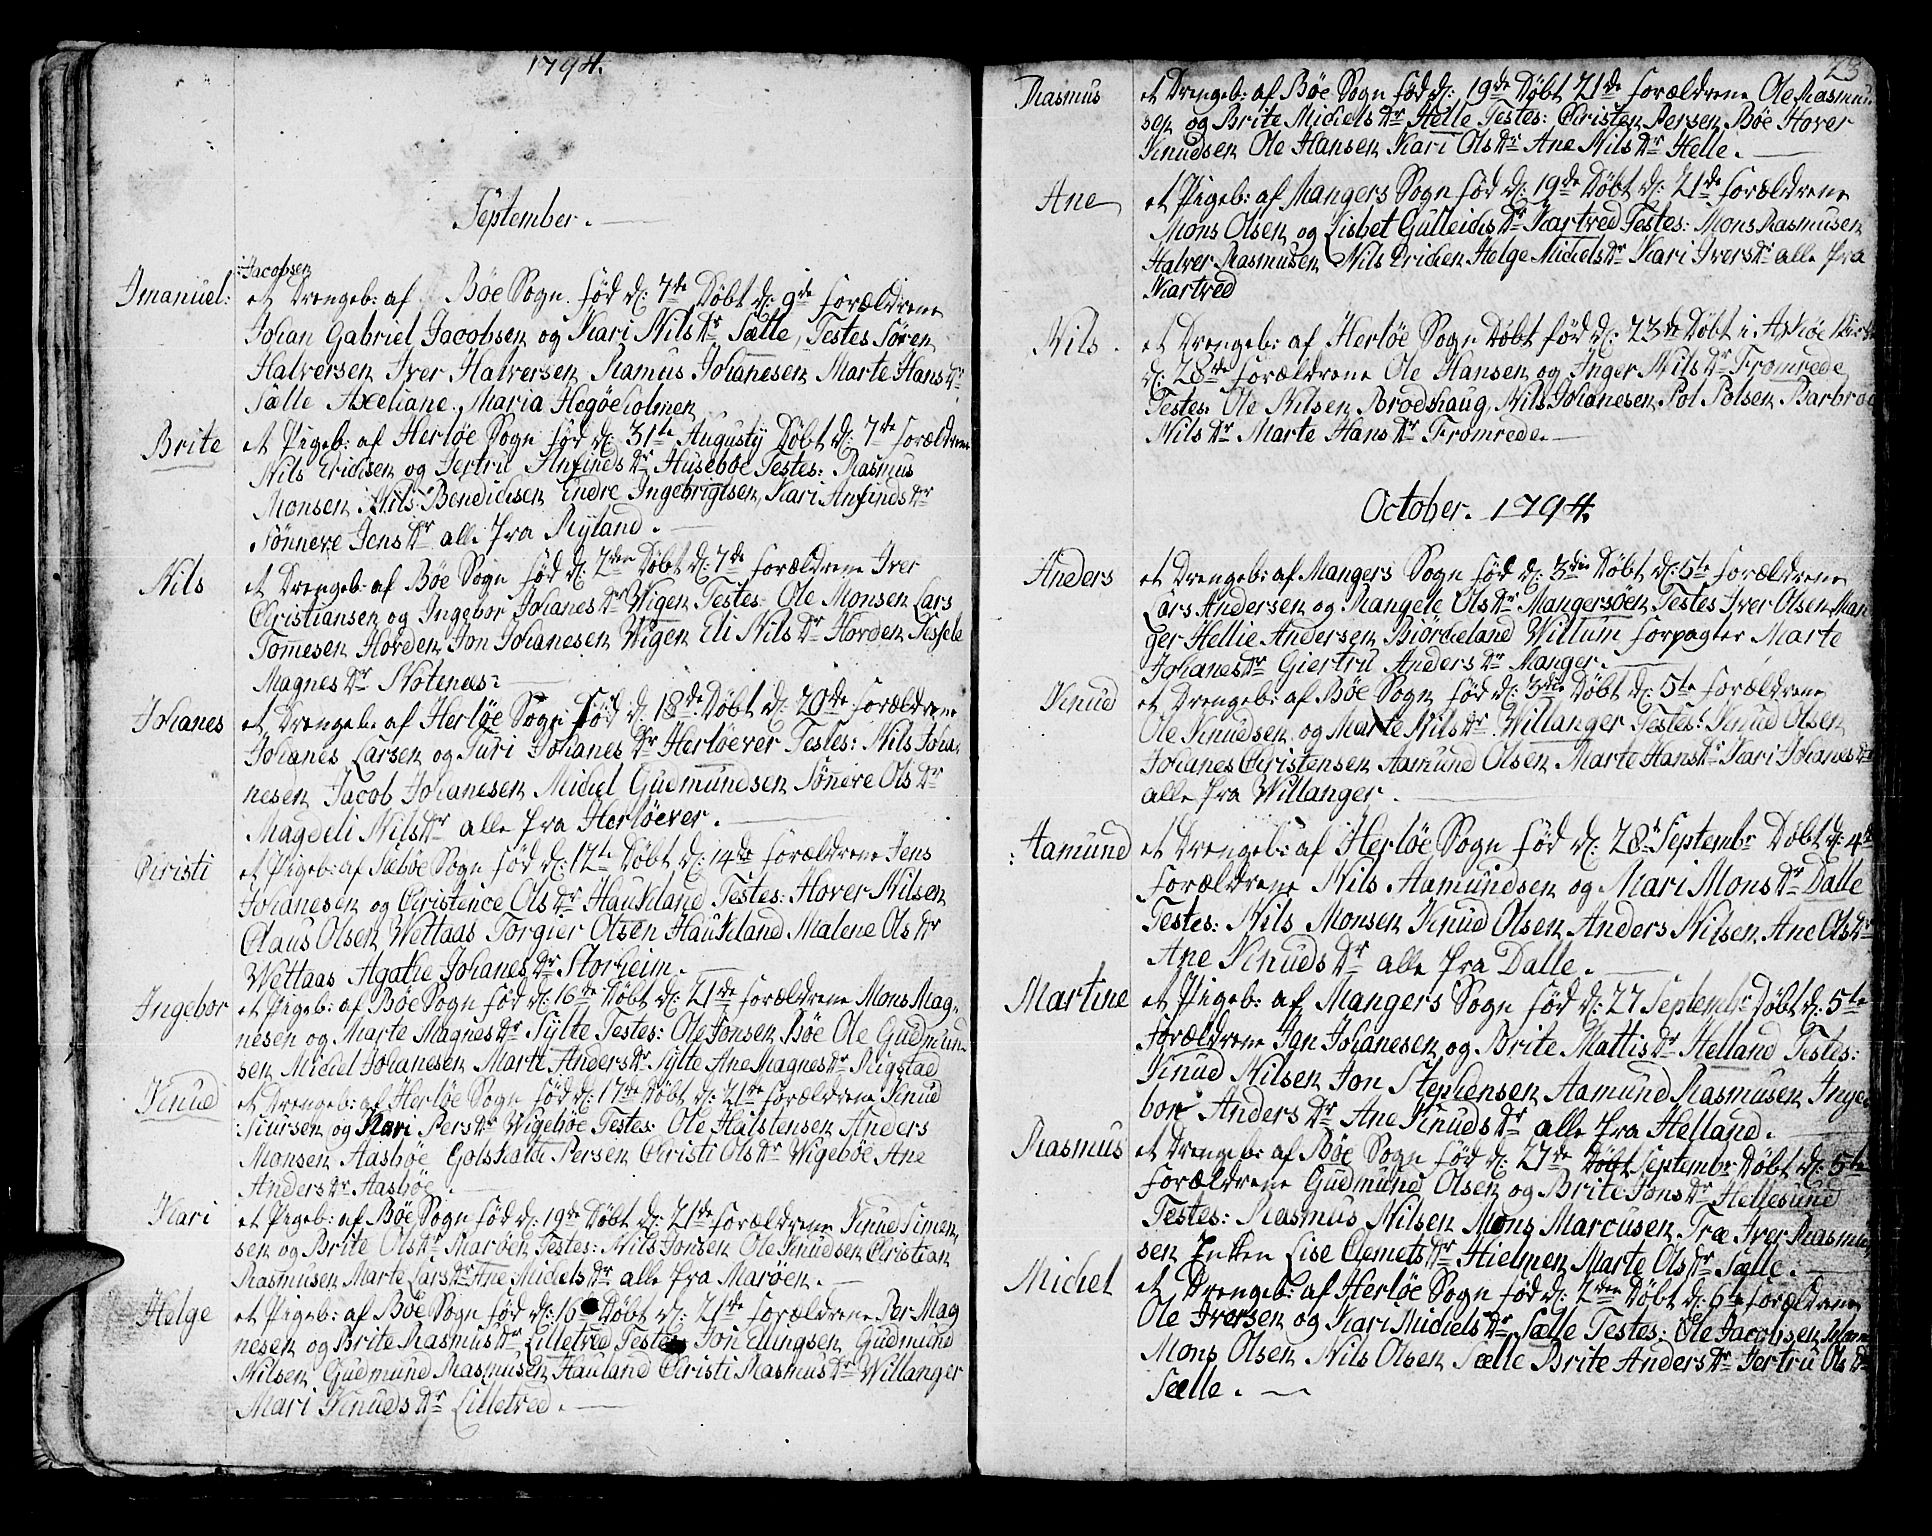 1794.
September.
Jmanuel: Jacobsen
et Drengeb: af Bøe Sogn. fød d: 7de Døbt d: 9de Forældrene
Johan Gabriel Jacobsen og Kari Nils Dr Sætle, Testes Søren
Halversen Jver Halversen Ramus Johanesen Marte Hans Dr
Sælle Axeliane Maria Hegøeholmen
Brite et Pigeb: af Herløe Sogn fød d: 31te Augustij Døbt d: 7de Forældrene
Nils Erichsen og Jertru Anfinds Dr Husebøe Testes: Rasmus
Monsen Nils Bendichsen Endre Ingebrigtsen Kari Anfinds Dr
Sønneve Jens Dr alle fra Ryland.
Nils et Drengeb: af Bøe Sogn fød d: 2den Døbt d: 7de Forældrene Jver
Christiansen og Ingebor Johanes Dr Wigen Testes: Ole Monsen Lars
Tomesen Horden Jon Johanesen Wigen Eli Nils Dr Horden Sessele
Magnes Dr Notenes:
Johanes et Drengeb: af Herløe Sogn fød d: 18de Døbt d: 20de Forældrene
Johanes Larsen og Turi Johanes Dr Herløever Testes: Nils Joha-
nesen Jacob Johanesen Michel Gudmundsen Sønneve Ols Dr
Magdeli Nils Dr alle fra Herløever.
Christi et Pigeb: af Sæbøe Sogn fød d: 12te Døbt d: 14de Forældrene Jens
Johanesen og Christence Ols Dr Haukeland Testes: Hover Nilsen
Claus Olsen Wettaas Torgier Olsen Haukeland Malene Ols Dr
Wettaas Agathe Johanes Dr Storheim.
Ingebor et Pigeb: af Bøe Sogn fød d: 16de Døbt d: 21de Forældrene Mons Mag-
nesen og Marte Magnes Dr Sylte Testes: Ole Jonsen Bøe Ole Gudmund
sen Michel Johanesen Marte Anders Dr Sylte Ane Magnes Dr Rigstad
Knud et Drengeb: af Herløe Sogn fød d: 17de Døbt d: 21de Forældrene Knud
Siursen og Kari Pers Dr Wigebøe Testes: Ole Helstensen Anders
Monsen Aasbøe Golskalch Persen Christi Ols Dr Wigebøe Ane
Anders Dr Aasbøe.
Kari et Pigeb: af Bøe Sogn fød d: 19de Døbt d: 21de Forældrene Knud Simen
sen og Brite Ols Dr Marøen Testes: Nils Jonsen Ole Knudsen Christian
Rasmusen Marte Lars Dr Ane Michels Dr alle fra Marøen.
Helge et Pigeb: af Bøe Sogn fød d: 16 Døbt d: 21de Forældrene Per Mag
nesen og Brite Rasmus Dr Lilletved Testes Jon Ellingsen Gudmund
Nilsen Gudmund Rasmusen Hauland Christi Rasmus Dr Willanger
Mari Knuds Dr Lilletved.
23
Rasmus et Drengeb: af Bøe Sogn fød d: 19de Døbt 21de Forældrene Ole Rasmu
sen og Brite Michels Dr Helle Testes: Christen Persen Bøe Hover
Knudsen Ole Hansen Kari Ols Dr Ane Nils Dr Helle.
Ane et Pigeb: af Mangers Sogn fød d: 19de Døbt d: 21de Forældrene
Mons Olsen og Lisbet Gulleichs Dr Kartved Testes: Mons Rasmusen
Halver Rasmusen Nils Erichen Helge Michels Dr Kari Jvers Dr alle fra
Kartved
Nils. et Drengeb: af Herløe Sogn Døbt fød d: 23de Døbt i Askøe Kirke
d: 28de Forældrene Ole Hansen og Inger Nils Dr Fromrede
Testes: Ole Nilsen Brodshaug Nils Johanesen Pol Polsen Barbroe
Nils Dr Marte Hans Dr Fromrede.
October. 1794.
Anders et Drengeb: af Mangers Sogn fød d: 3die Døbt d: 5te Forældrene
Lars Andersen og Rangele Ols Dr Mangersøen Testes Jver Olsen Man
ger Hellie Andersen Biørcheland Willum Forpagter Marte
Johanes Dr Giertru Anders Dr Manger.
Knud et Drengeb: af Bøe Sogn fød d: 3die Døbt d: 5te Forældrene
Ole Knudsen og Marte Nils Dr Willanger Testes: Knud Olsen
Johanes Christensen Aamund Olsen Marte Hans Dr Kari Johanes Dr
alle fra Willanger.
Aamund et Drengeb: af Herløe Sogn fød d: 28de Septembr Døbt d: 4de
Forældrene Nils Aamundsen og Mari Mons Dr Dalle
Testes: Nils Monsen Knud Olsen Anders Nilsen Ane Ols Dr
Ane Knuds Dr alle fra Dalle.
Martine et Pigeb: af Mangers Sogn fød d: 27 Septembr Døbt d: 5te
Forældrene Jan Johanesen og Brite Mattis Dr Helland Testes:
Knud Nilsen Jon Stephensen Aamund Rasmusen Inge
bor Anders Dr Ane Knuds Dr alle fra Helland.
Rasmus et Drengeb: af Bøe Sogn fød d: 27de Døbt Septembr Døbt d: 5te
Forældrene Gudmund Olsen og Brite Jons Dr Hellesund
Testes: Rasmus Nilsen Mons Marcusen Træ Jver Rasmu
sen Enken Lise Clemets Dr Hielmen Marte Ols Dr Sælle.
Michel et Drengeb: af Herløe Sogn fød d: 2den Døbt d: 6te Forældrene
Ole Jversen og Kari Michels Dr Sælle Testes: Ole Jacobsen
Mons Olsen Nils Olsen Sælle Brite Anders Dr Jertru Ols Dr
Sælle.